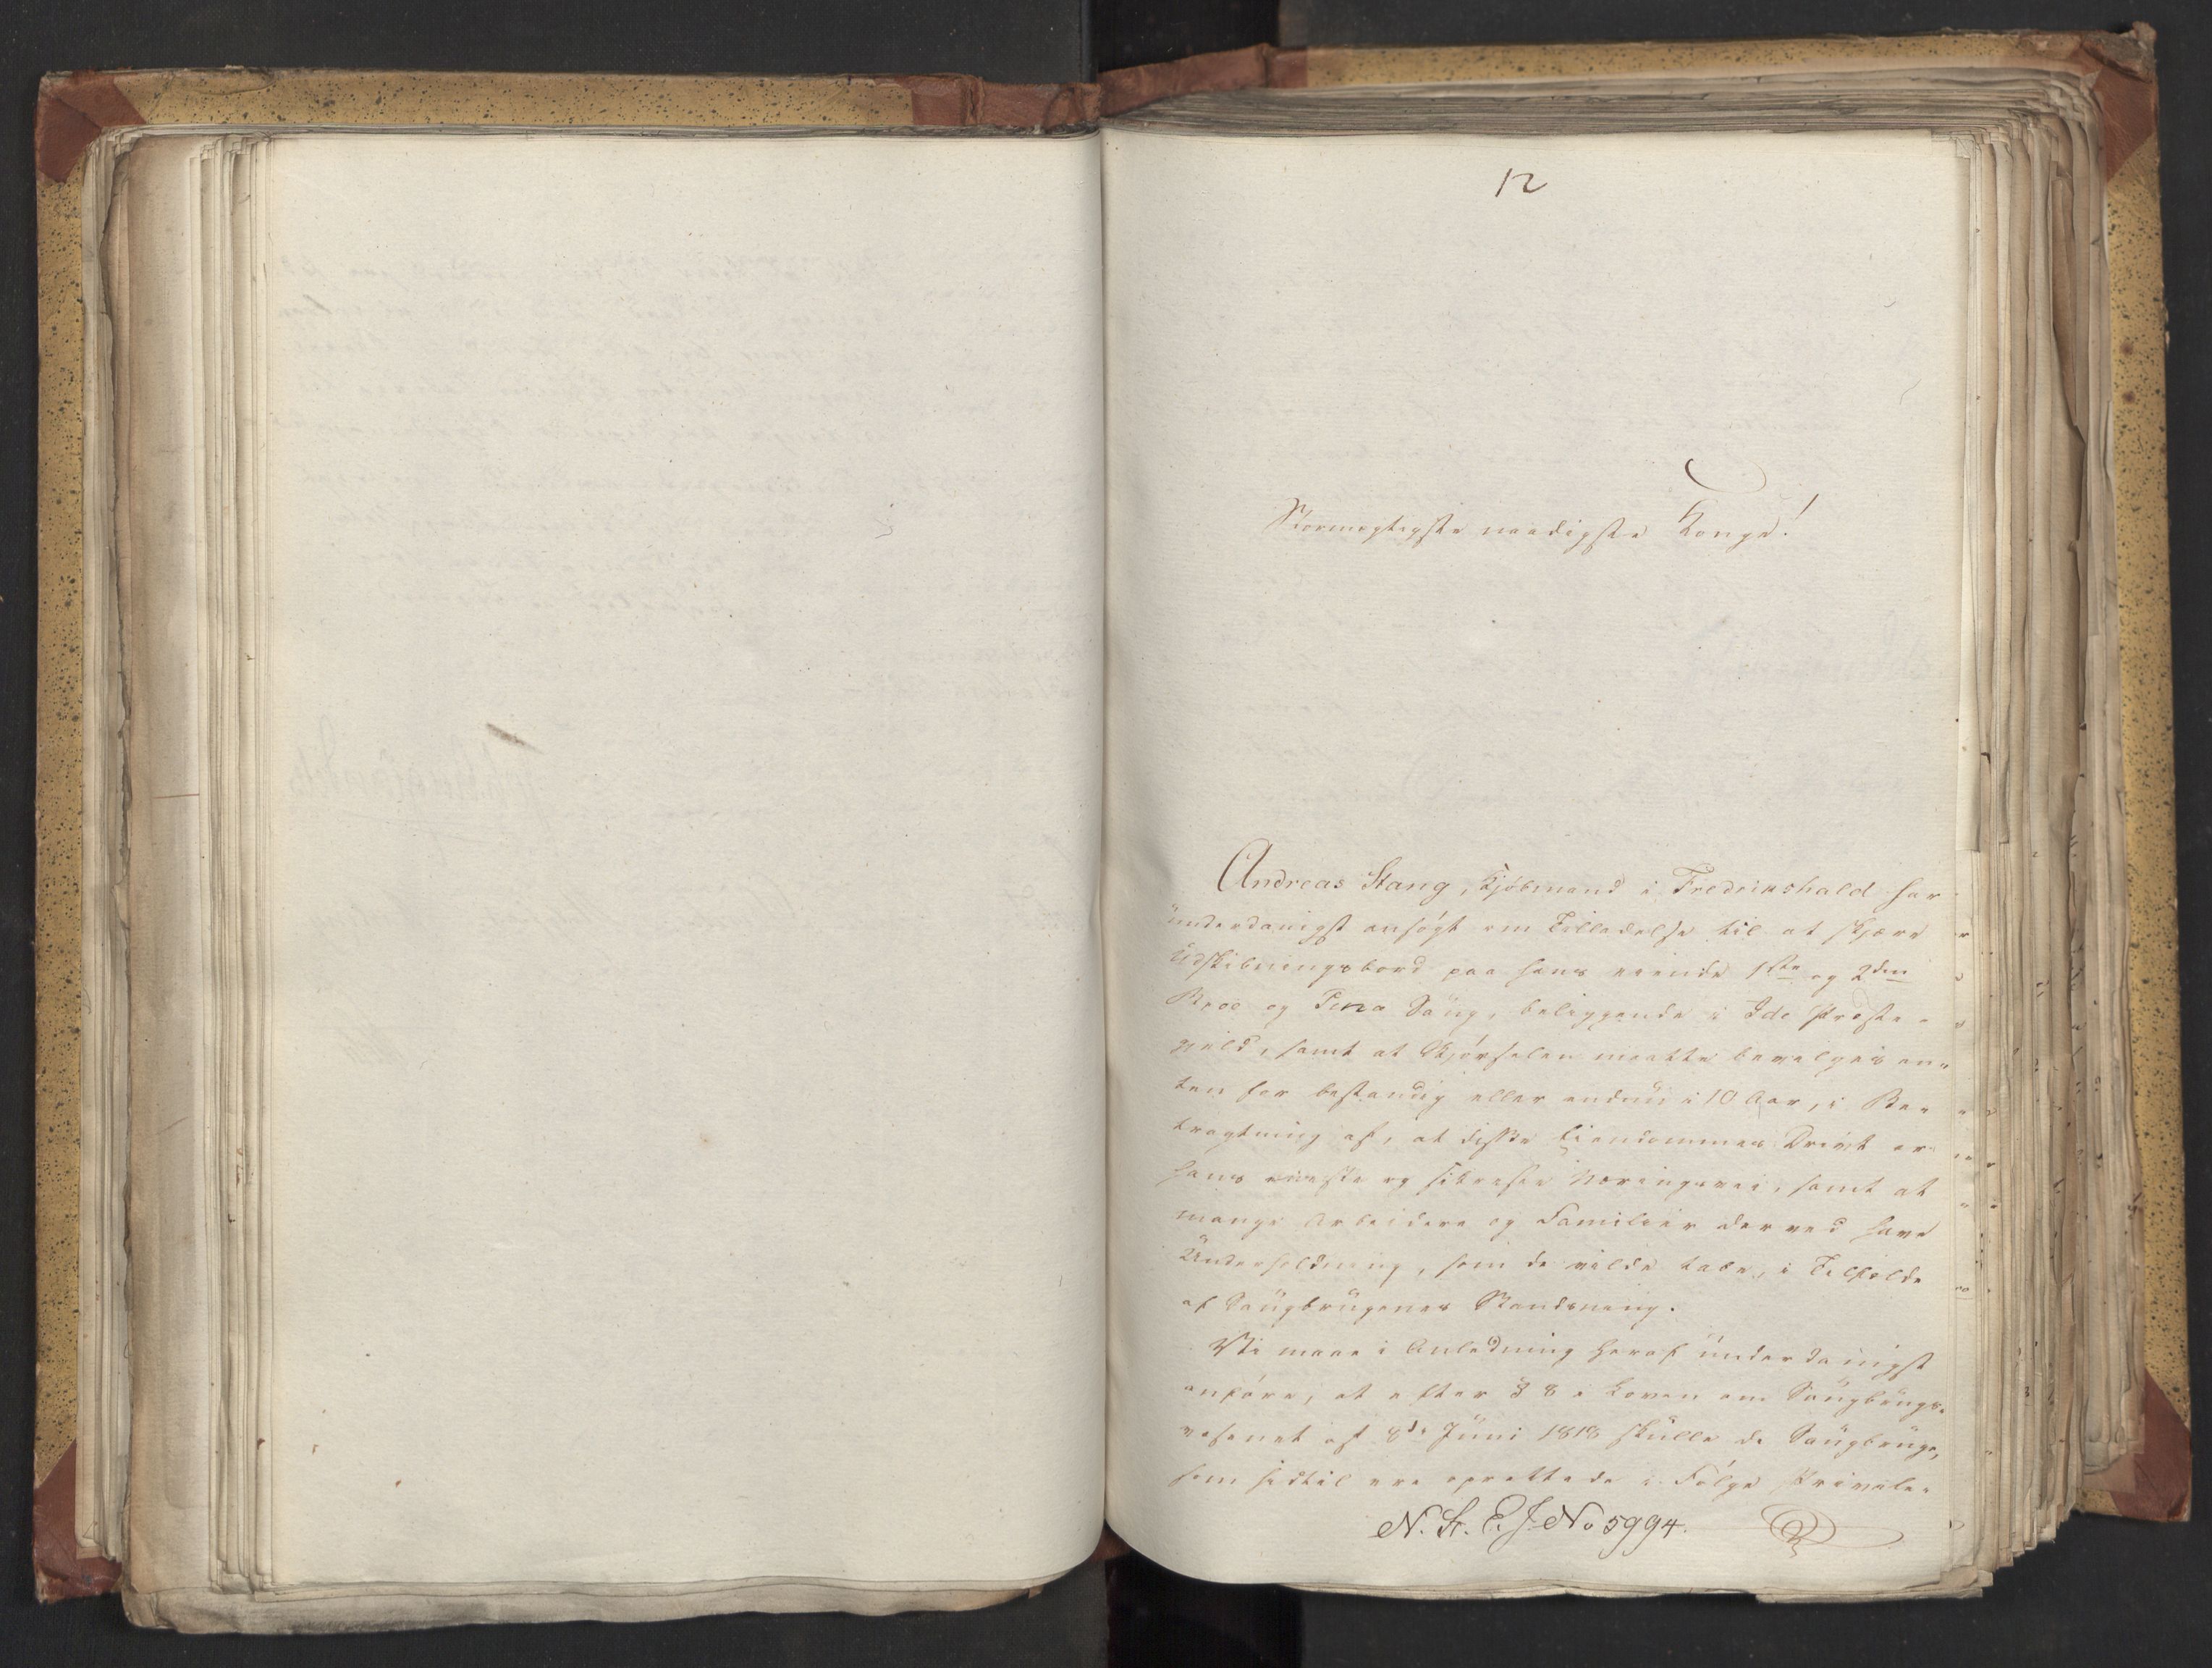 12
Stormægtigste naadigste Konge!
Andreas Stang, Kjøbmand i Fredrikshald har
underdanigst ansøgt om Tilladelse til at skjære
Udskibningsbord paa hans eiende 1ste og 2den
Broe og Saug, beliggende i Ide Præste-
gield, samt at Skjørselen maatte bevilges en-
ten for bestandig eller endnu i 10 Aar, i Be-
tragtning af, at disse Eiendommes Drivt er
hans eneste og sikreste Næringsvei, samt at
mange Arbeidere og Familier derved have
Underholdning, som de vilde tabe, i Tilfælde
af Saugbrugenes Standsning.
Vi maae i Anledning heraf underdanigst
anføre, at efter § 8 i Loven om Saugbrugs-
væsenet af 8de Juni 1818 skulle de Saugbruge,
som hidtil ere oprettede i Følge Privile-
N. St. E. J. No 5994.